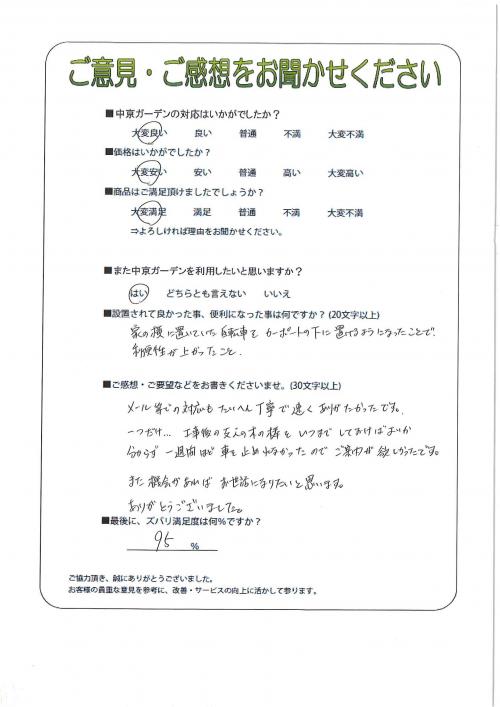 ご意見・ご感想をお聞かせください
■中京ガーデンの対応はいかがでしたか?
大変良い 良い 普通 不満 大変不満
■価格はいかがでしたか?
大変安い 安い 普通 高い 大変高い
■商品はご満足頂けましたでしょうか?
大変満足 満足 普通 不満 大変不満
⇒よろしければ理由をお聞かせください。
■また中京ガーデンを利用したいと思いますか?
はい どちらとも言えない いいえ
■設置されて良かった事、便利になった事は何ですか?(20文字以上)
家の横に置いていた自転車を カーポートの下に置けるようになったことで、
利便性が上がったこと。
■ご感想・ご要望などをお書きくださいませ。(30文字以上)
メール等での対応も たいへん丁寧で速く ありがたかったです。
一つだけ… 工事後の支えの木の棒を いつまで しておけばよいか
分からず 一週間ほど 車を止めれなかったので ご案内が欲しかったです。
また機会があれば お世話になりたいと思います。
ありがとうございました。
■最後に、ズバリ満足度は何%ですか?
95 %
ご協力頂き、誠にありがとうございました。
お客様の貴重な意見を参考に、改善・サービスの向上に活かして参ります。